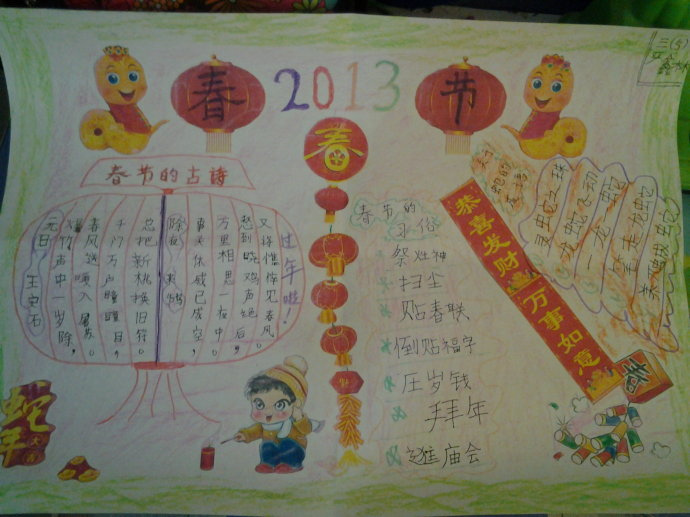 春
2013
节
三(5)
春节的古诗
元日 王安石
爆竹声中一岁除,
春风送暖入屠苏。
千门万户曈曈日,
总把新桃换旧符。
除夜 来鹄
事关休戚已成空,
万里相思一夜中。
愁到晓鸡声绝后,
又将憔悴见春风。
过年啦!
春
春节的
习俗
祭灶神
扫尘
贴春联
倒贴福字
压岁钱
拜年
逛庙会
恭喜发财 万事如意
灵蛇之珠
龙蛇飞动
一龙一蛇
笔走龙蛇
蛇年
大吉
春